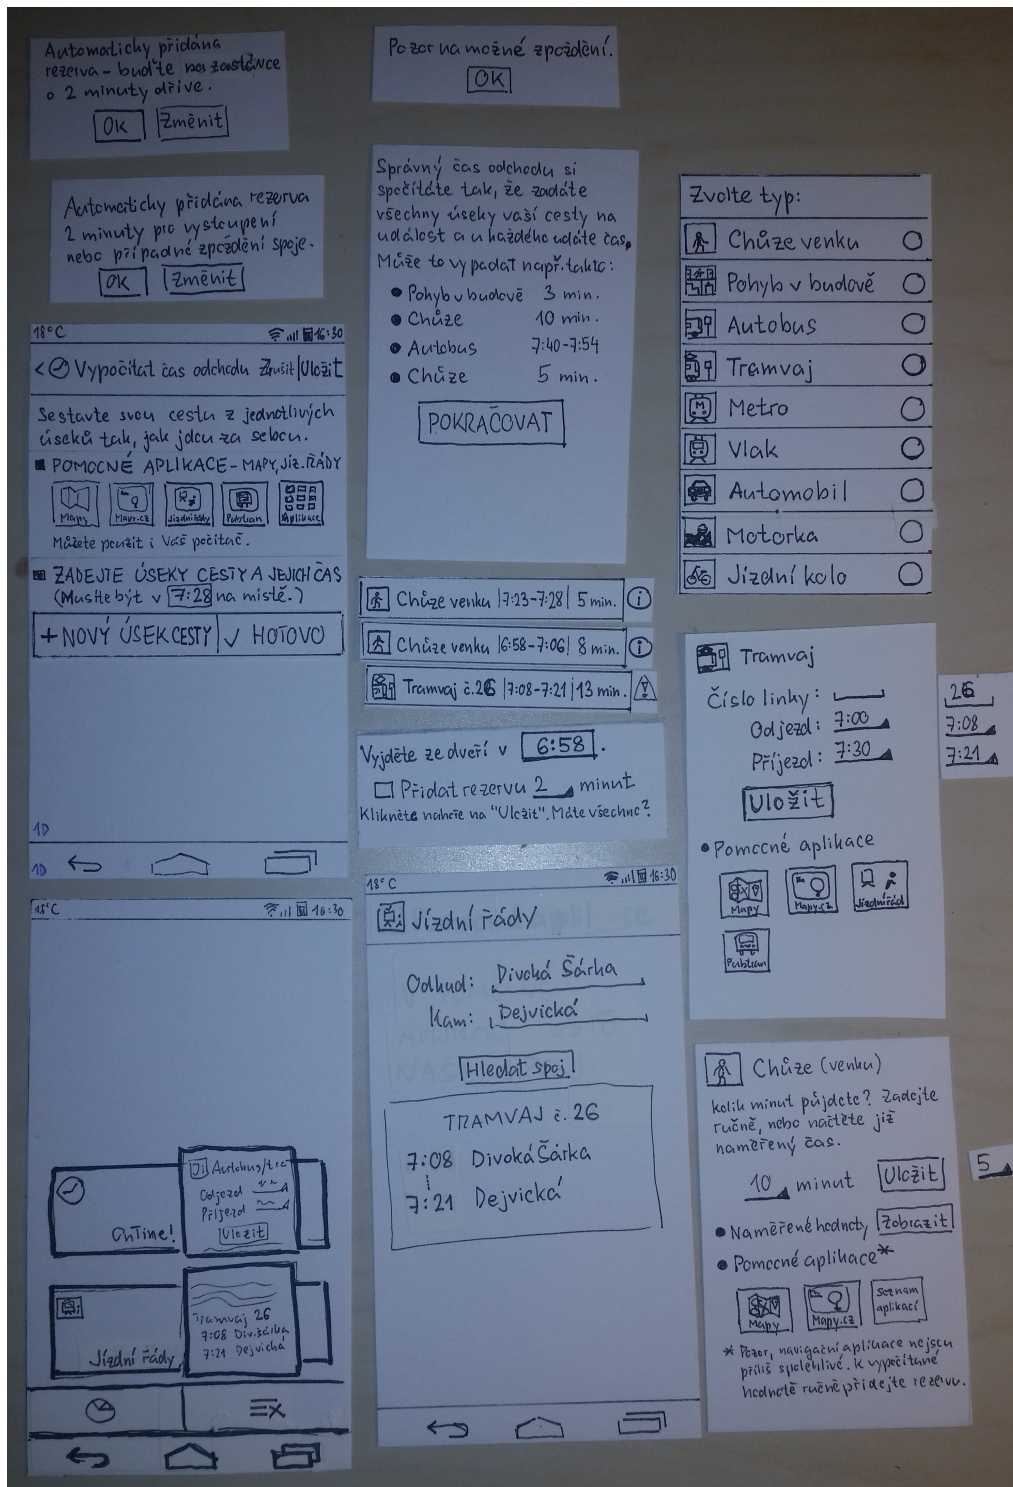 Automaticky přidána
rezerva - buďte na zastávce
o 2 minuty dříve.
OK Změnit
Automaticky přidána rezerva
2 minuty pro vystoupení
nebo případné zpoždění spoje.
OK Změnit
18°C 16:30
< Vypočítat čas odchodu Zrušit|Uložit
Sestavte svou cestu z jednotlivých
úseků tak, jak jdou za sebou.
POMOCNÉ APLIKACE - MAPY, JÍZ. ŘÁDY
Mapy Mapy.cz Jízdní řády Pubtran Aplikace
Můžete použít i Váš počítač.
ZADEJTE ÚSEKY CESTY A JEJICH ČAS
(Musíte být v 7:28 na místě.)
+ NOVÝ ÚSEK CESTY ✓ HOTOVO
1D
1D
18°C 16:30
OnTime!
Ji Autobus/tra
Odjezd
Příjezd
Uložit
Jízdní řády
Tramvaj 26
7:08 Div.šárka
7:21 Dejvická
Pozor na možné zpoždění.
OK
Správný čas odchodu si
spočítáte tak, že zadáte
všechny úseky vaší cesty na
událost a u každého udáte čas.
Může to vypadat např. takto:
• Pohyb v budově 3 min.
• Chůze 10 min.
• Autobus 7:40-7:54
• Chůze 5 min.
POKRAČOVAT
Chůze venku |7:23-7:28| 5 min. i
Chůze venku |6:58-7:06| 8 min. i
Tramvaj č.26 |7:08-7:21|13 min. !
Vyjděte ze dveří v 6:58.
Přidat rezervu 2 minut
Klikněte nahoře na "Uložit". Máte všechno?
18°C 16:30
Jízdní řády
Odkud: Divoká Šárka
Kam: Dejvická
Hledat spoj
TRAMVAJ č. 26
7:08 Divoká Šárka
7:21 Dejvická
Zvolte typ:
Chůze venku
Pohyb v budově
Autobus
Tramvaj
M Metro
Vlak
Automobil
Motorka
Jízdní kolo
Tramvaj
Číslo linky:
Odjezd: 7:00
Příjezd: 7:30
Uložit
• Pomocné aplikace
Mapy Mapy.cz Jízdní řád
Pubtran
26
7:08
7:21
Chůze (venku)
Kolik minut půjdete? Zadejte
ručně, nebo načtěte již
naměřený čas.
10 minut Uložit
5
• Naměřené hodnoty Zobrazit
• Pomocné aplikace*
Mapy Mapy.cz Seznam aplikací
* Pozor, navigační aplikace nejsou
příliš spolehlivé. K vypočítané
hodnotě ručně přidejte rezervu.